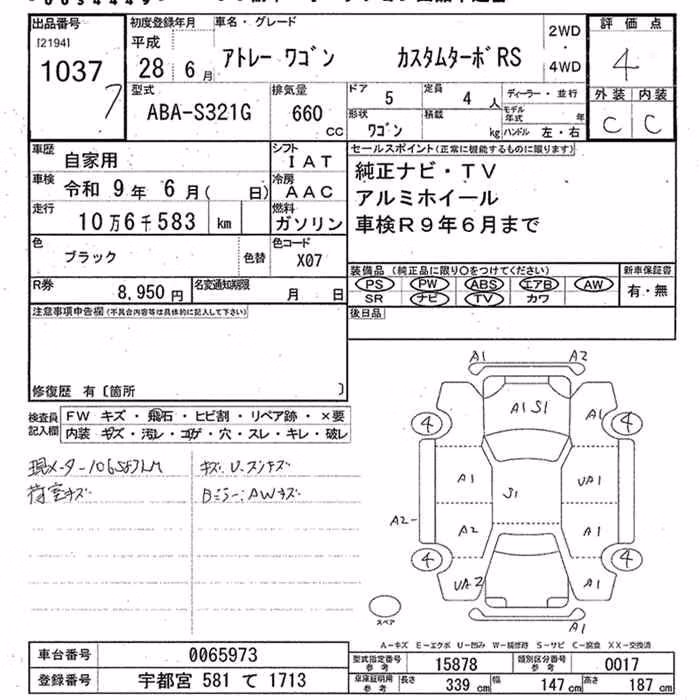 出品番号 初度登録年月 車名・グレード 評価点
[2194] 平成 2WD
1037 28年 6月 アトレー ワゴン カスタムターボRS ・ 4
7 4WD
型式 排気量 ドア 5 定員 4人 ディーラー・並行 外装 内装
ABA-S321G 660 cc 形状 ワゴン 積載 kg モデル年式 年 C C
ハンドル 左・右
車歴 自家用 シフト IAT セールスポイント(正常に機能するものに限ります)
車検 令和 9年 6月( 日) 冷房 AAC 純正ナビ・TV
走行 10万6千583 km 燃料 ガソリン アルミホイール
車検R9年6月まで
色 ブラック 色替 色コード X07
装備品(純正品に限り○をつけてください) 新車保証書
R券 8,950円 名変通知期限 月 日 PS PW ABS エアB AW 有・無
SR ナビ TV カワ
注意事項申告欄(不具合内容等は具体的に記入して下さい) 後日品
修復歴 有〔箇所 〕
検査員記入欄 FW キズ・飛石・ヒビ割・リペア跡・×要
内装 キズ・汚レ・コゲ・穴・スレ・キレ・破レ
荷室キズ
A1 A2
4 A1 S1 A1 4
A1 UA1
S1
A2 A2 A1
4 4
UA2 A1
A1
スペア
A-キズ E-エクボ U-凹み W-補修跡 S-サビ C-腐食 XX-交換済
車台番号 0065973 型式指定番号 参考 15878 類別区分番号 参考 0017
登録番号 宇都宮 581 て 1713 車庫証明用 参考 長さ 339 cm 幅 147 cm 高さ 187 cm